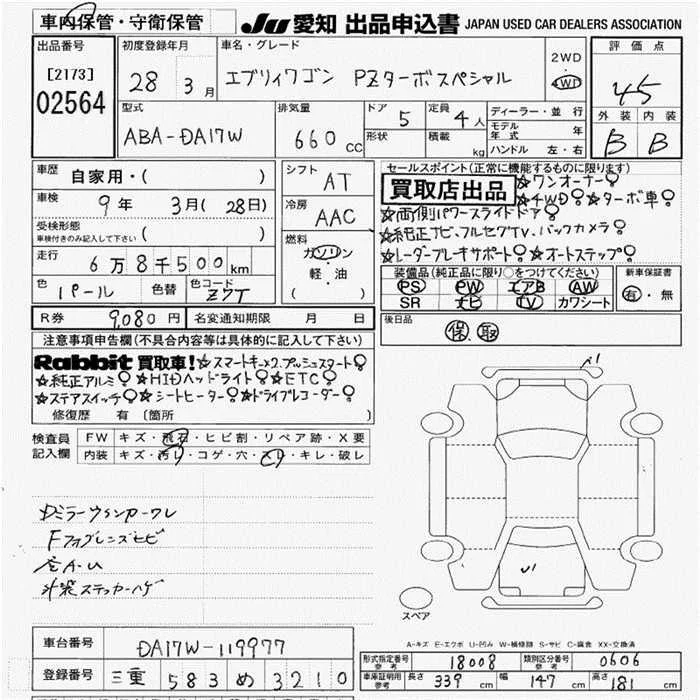 車内保管・守衛保管 JU 愛知 出品申込書 JAPAN USED CAR DEALERS ASSOCIATION
出品番号 初度登録年月 車名・グレード 2WD 評価点
[2173] 28 3月 エブリィワゴン PZターボスペシャル 4WD 4.5
02564 型式 排気量 ドア 5 定員 4人 ディーラー・並行 外装 内装
ABA-DA17W 660cc 形状 積載 kg モデル年式 年 B B
ハンドル 左・右
車歴 自家用・( ) シフト AT セールスポイント(正常に機能するものに限ります)
車検 9年 3月(28日) 冷房 AAC 買取店出品 ☆ワンオーナー!
☆4WD!☆ターボ車!
受検形態 ( ) ☆両側パワースライドドア!
車検付きのみ記入して下さい 燃料 ☆純正ナビ、フルセグTV、バックカメラ!
走行 6万8千500km ガソリン ☆レーダーブレーキサポート!☆オートステップ!
色 パール 色替 色コード Z7T 軽・油 装備品(純正品に限り○をつけてください) 新車保証書
( ) PS PW エアB AW 有・無
SR ナビ TV カワシート
R券 9,080円 名変通知期限 月 日 後日品
注意事項申告欄(不具合内容等は具体的に記入して下さい) 保 取
Rabbit 買取車!☆スマートキー×2.プッシュスタート!
☆純正アルミ!☆HIDヘッドライト!☆ETC!
☆ステアスイッチ!☆シートヒーター!☆ドライブレコーダー!
修復歴 有 〔箇所 〕
検査員記入欄 FW キズ・飛石・ヒビ割・リペア跡・X要
内装 キズ・汚レ・コゲ・穴・スレ・キレ・破レ
A1
U1
スペア
A-キズ E-エクボ U-凹み W-補修跡 S-サビ C-腐食 XX-交換済
車台番号 DA17W-119977
登録番号 三重 583 め 3210
形式指定番号 参考 18008 類別区分番号 参考 0606
車庫証明用 参考 長さ 339cm 幅 147cm 高さ 181cm